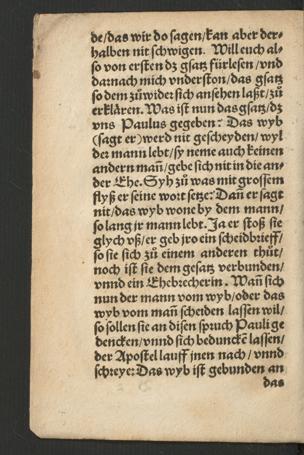 de/das wir do sagen/kan aber der-
halben nit schwigen. Will euch al-
so von ersten dz gsatz fürlesen/vnd
darnach mich vnderston/das gsatz
so dem zůwider sich ansehen laßt/zů
erklären. Was ist nun das gsatz/dz
vns Paulus gegeben? Das wyb
(sagt er) werd nit gescheyden/wyl
der mann lebt/sy neme auch keinen
andern man̄/gebe sich nit in die an-
der Ehe. Syh zů was mit grossem
flyß er seine wort setze: Dan̄ er sagt
nit/das wyb wone by dem mann/
so lang jr mann lebt. Ja er stoß sie
glych vß/er geb jro ein scheidbrieff/
so sie sich zů einem anderen thůt/
noch ist sie dem gesatz verbunden/
vnnd ein Ehebrecherin. Wan̄ sich
nun der mann vom wyb/oder das
wyb vom man̄ scheiden lassen wil/
so sollen sie an disen spruch Pauli ge
dencken/vnnd sich beduncke͂ lassen/
der Apostel lauff jnen nach/vnnd
schreye: Das wyb ist gebunden an
das